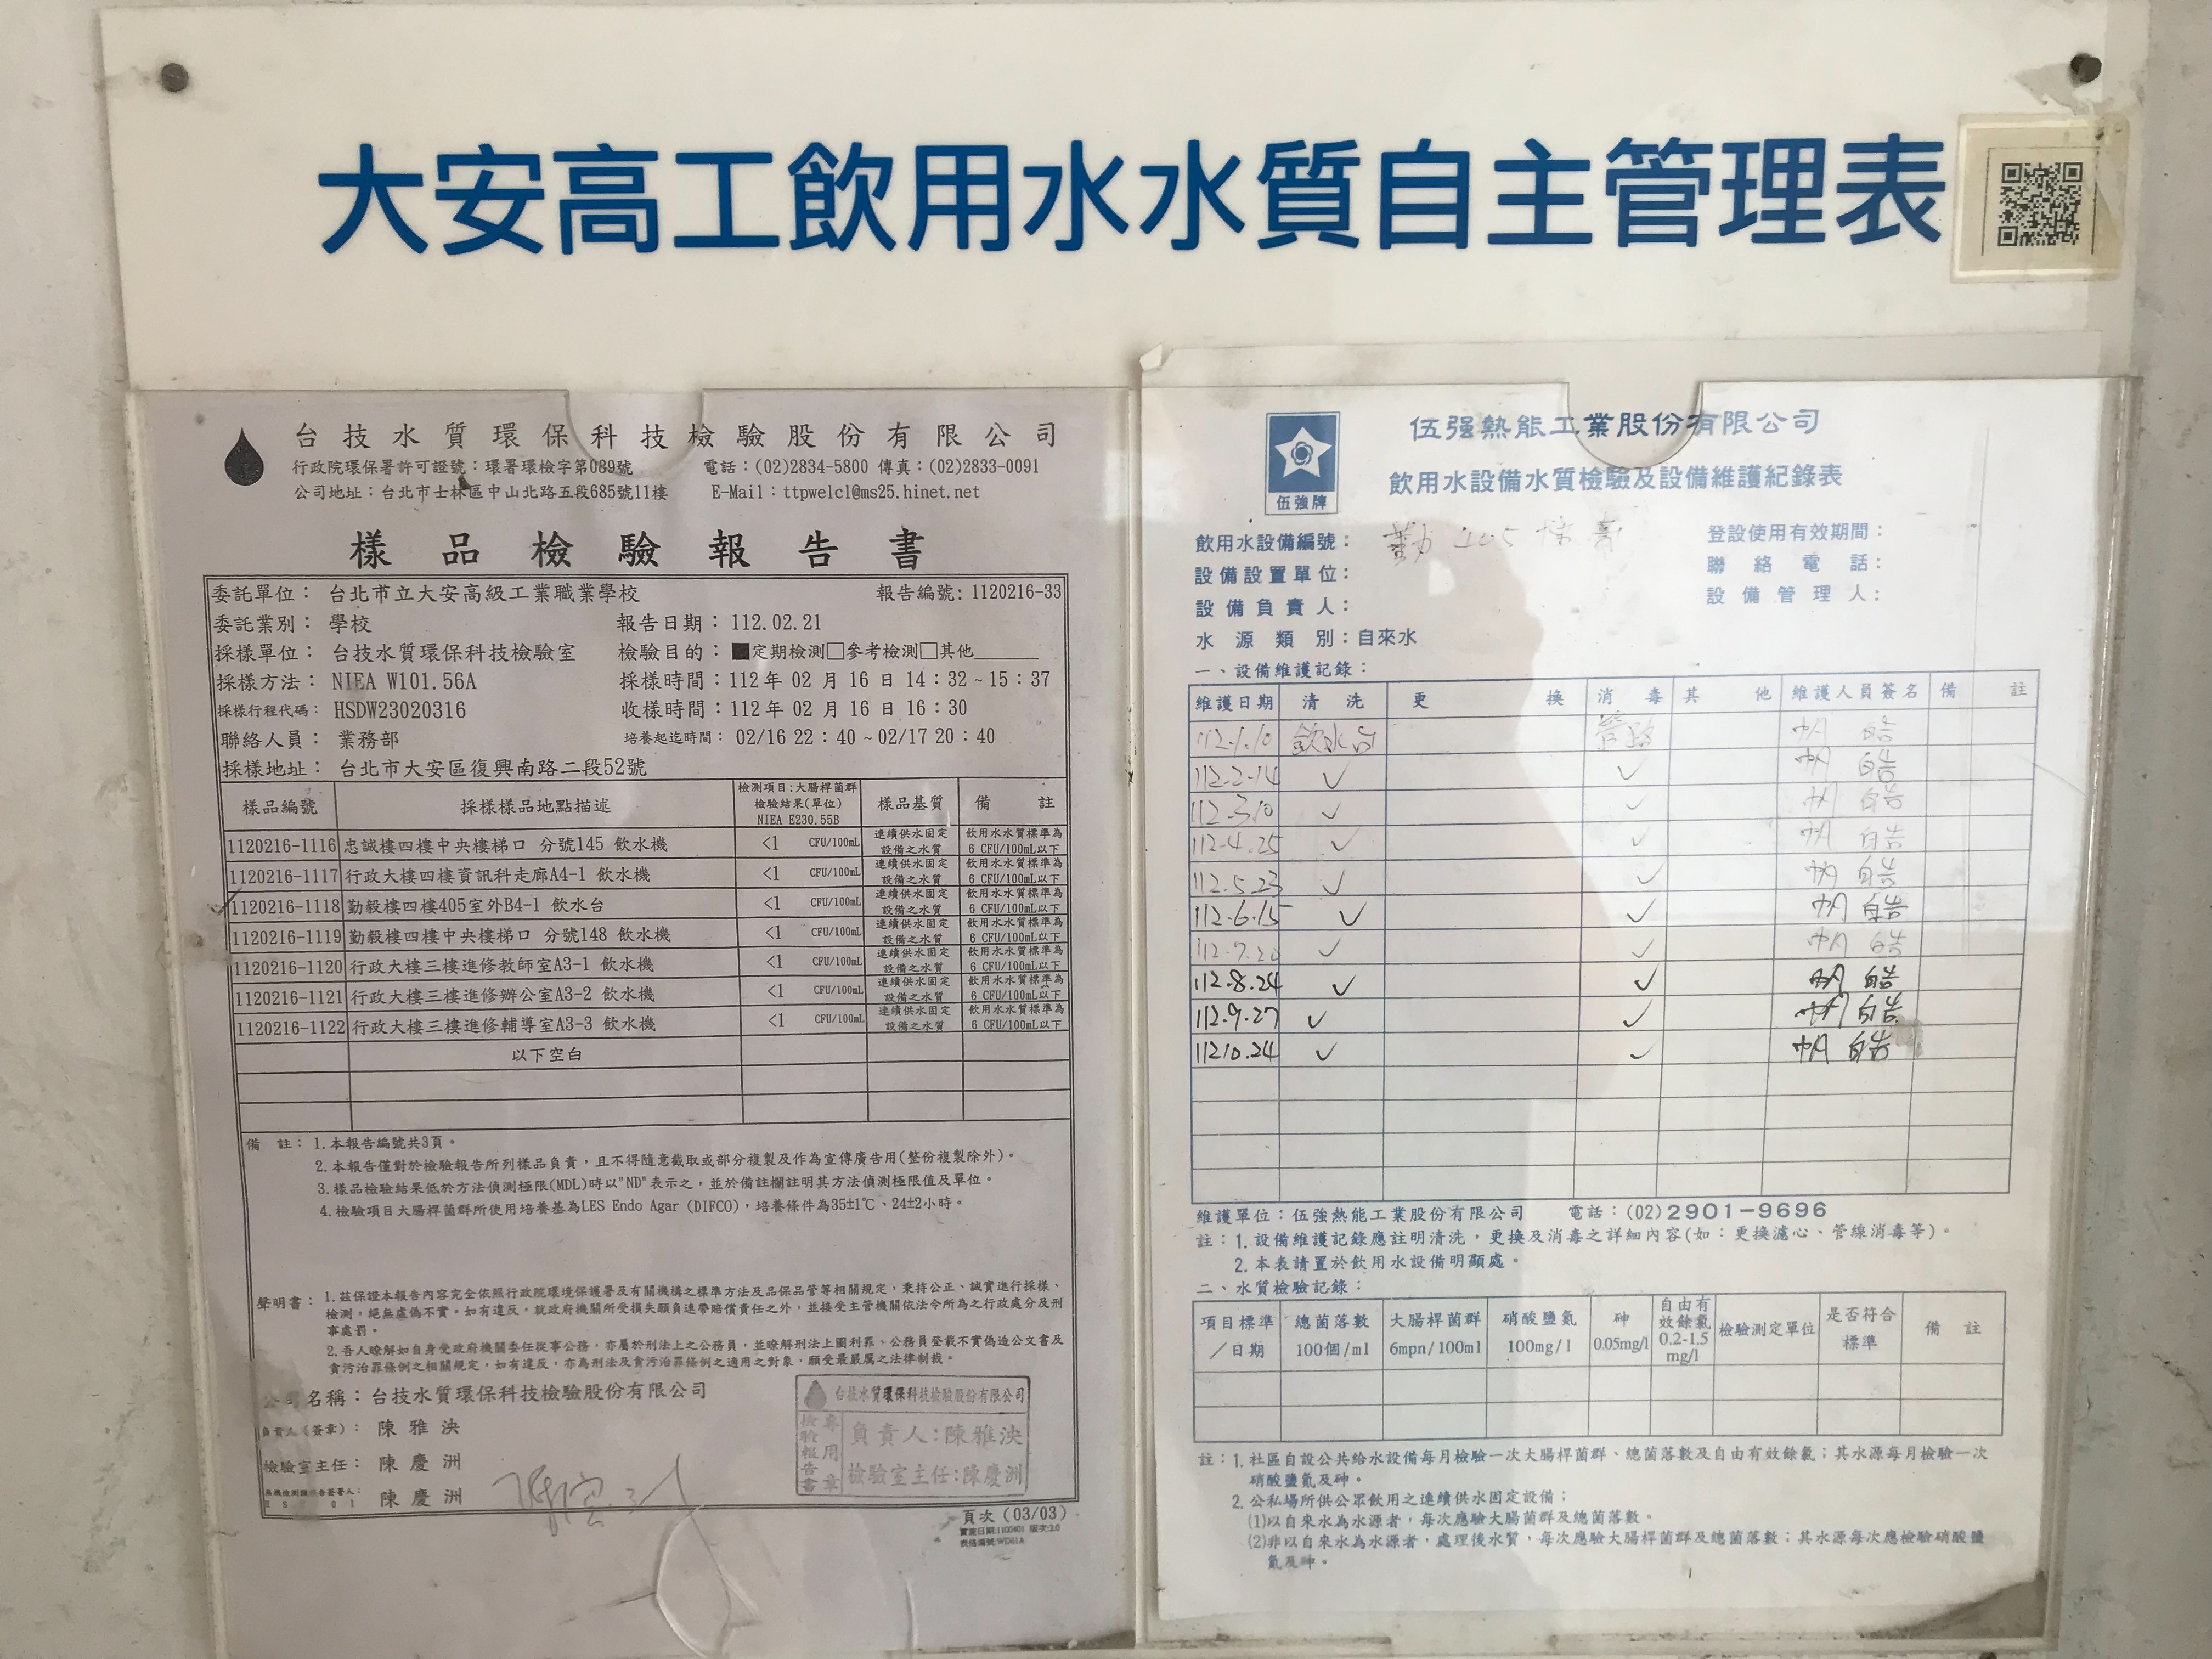 大安高工飲用水水質自主管理表
台技水質環保科技檢驗股份有限公司
行政院環保署許可證號：環署環檢字第089號 電話：(02)2834-5800 傳真：(02)2833-0091
公司地址：台北市士林區中山北路五段685號11樓 E-Mail：ttpwelcl@ms25.hinet.net
樣品檢驗報告書
委託單位： 台北市立大安高級工業職業學校 報告編號: 1120216-33
委託業別： 學校 報告日期：112.02.21
採樣單位： 台技水質環保科技檢驗室 檢驗目的：■定期檢測□參考檢測□其他
採樣方法： NIEA W101.56A 採樣時間：112年 02 月 16 日 14：32~15：37
採樣行程代碼： HSDW23020316 收樣時間：112年 02 月 16 日 16：30
聯絡人員： 業務部 培養起迄時間： 02/16 22：40 ~ 02/17 20：40
採樣地址： 台北市大安區復興南路二段52號
樣品編號 採樣樣品地點描述 檢測項目:大腸桿菌群 檢驗結果(單位) NIEA E230.55B 樣品基質 備註
1120216-1116 忠誠樓四樓中央樓梯口 分號145 飲水機 <1 CFU/100mL 連續供水固定設備之水質 飲用水水質標準為6 CFU/100mL以下
1120216-1117 行政大樓四樓資訊科走廊A4-1 飲水機 <1 CFU/100mL 連續供水固定設備之水質 飲用水水質標準為6 CFU/100mL以下
1120216-1118 勤毅樓四樓405室外B4-1 飲水台 <1 CFU/100mL 連續供水固定設備之水質 飲用水水質標準為6 CFU/100mL以下
1120216-1119 勤毅樓四樓中央樓梯口 分號148 飲水機 <1 CFU/100mL 連續供水固定設備之水質 飲用水水質標準為6 CFU/100mL以下
1120216-1120 行政大樓三樓進修教師室A3-1 飲水機 <1 CFU/100mL 連續供水固定設備之水質 飲用水水質標準為6 CFU/100mL以下
1120216-1121 行政大樓三樓進修辦公室A3-2 飲水機 <1 CFU/100mL 連續供水固定設備之水質 飲用水水質標準為6 CFU/100mL以下
1120216-1122 行政大樓三樓進修輔導室A3-3 飲水機 <1 CFU/100mL 連續供水固定設備之水質 飲用水水質標準為6 CFU/100mL以下
以下空白
備註：1.本報告編號共3頁。
2.本報告僅對於檢驗報告所列樣品負責，且不得隨意截取或部分複製及作為宣傳廣告用(整份複製除外)。
3.樣品檢驗結果低於方法偵測極限(MDL)時以"ND"表示之，並於備註欄註明其方法偵測極限值及單位。
4.檢驗項目大腸桿菌群所使用培養基為LES Endo Agar (DIFCO)，培養條件為35±1℃、24±2小時。
聲明書：1.茲保證本報告內容完全依照行政院環境保護署及有關機構之標準方法及品保品管等相關規定，秉持公正、誠實進行採樣、
檢測，絕無虛偽不實。如有違反，就政府機關所受損失願負連帶賠償責任之外，並接受主管機關依法令所為之行政處分及刑
事處罰。
2.吾人瞭解如自身受政府機關委任從事公務，亦屬於刑法上之公務員，並瞭解刑法上圖利罪、公務員登載不實偽造公文書及
貪污治罪條例之相關規定，如有違反，亦為刑法及貪污治罪條例之適用之對象，願受最嚴厲之法律制裁。
公司名稱：台技水質環保科技檢驗股份有限公司
負責人(簽章)： 陳雅泱
檢驗室主任： 陳慶洲
陳慶洲
台技水質環保科技檢驗股份有限公司
檢驗報告書專用章
負責人:陳雅泱
檢驗室主任:陳慶洲
頁次 (03/03)
實施日期:1100401 版次:2.0
表格編號:WD61A
伍强熱能工業股份有限公司
伍強牌
飲用水設備水質檢驗及設備維護紀錄表
飲用水設備編號： 勤 405 登設使用有效期間：
設備設置單位： 聯絡電話：
設備負責人： 設備管理人：
水源類別：自來水
一、設備維護記錄：
維護日期 清洗 更換 消毒 其他 維護人員簽名 備註
112.1.10 飲水台 管路
112.2.14 ✓ ✓
112.3.10 ✓ ✓
112.4.25 ✓ ✓
112.5.23 ✓ ✓
112.6.15 ✓ ✓
112.7.20 ✓ ✓
112.8.24 ✓ ✓
112.9.27 ✓ ✓
112.10.24 ✓ ✓
維護單位：伍強熱能工業股份有限公司 電話：(02)2901-9696
註：1.設備維護記錄應註明清洗，更換及消毒之詳細內容(如：更換濾心、管線消毒等)。
2.本表請置於飲用水設備明顯處。
二、水質檢驗記錄：
項目標準／日期 總菌落數 100個/ml 大腸桿菌群 6mpn/100ml 硝酸鹽氮 100mg/l 砷 0.05mg/l 自由有效餘氯 0.2-1.5 mg/l 檢驗測定單位 是否符合標準 備註
註：1.社區自設公共給水設備每月檢驗一次大腸桿菌群、總菌落數及自由有效餘氯；其水源每月檢驗一次
硝酸鹽氮及砷。
2.公私場所供公眾飲用之連續供水固定設備；
(1)以自來水為水源者，每次應驗大腸菌群及總菌落數。
(2)非以自來水為水源者，處理後水質，每次應驗大腸桿菌群及總菌落數；其水源每次應檢驗硝酸鹽
氮及砷。